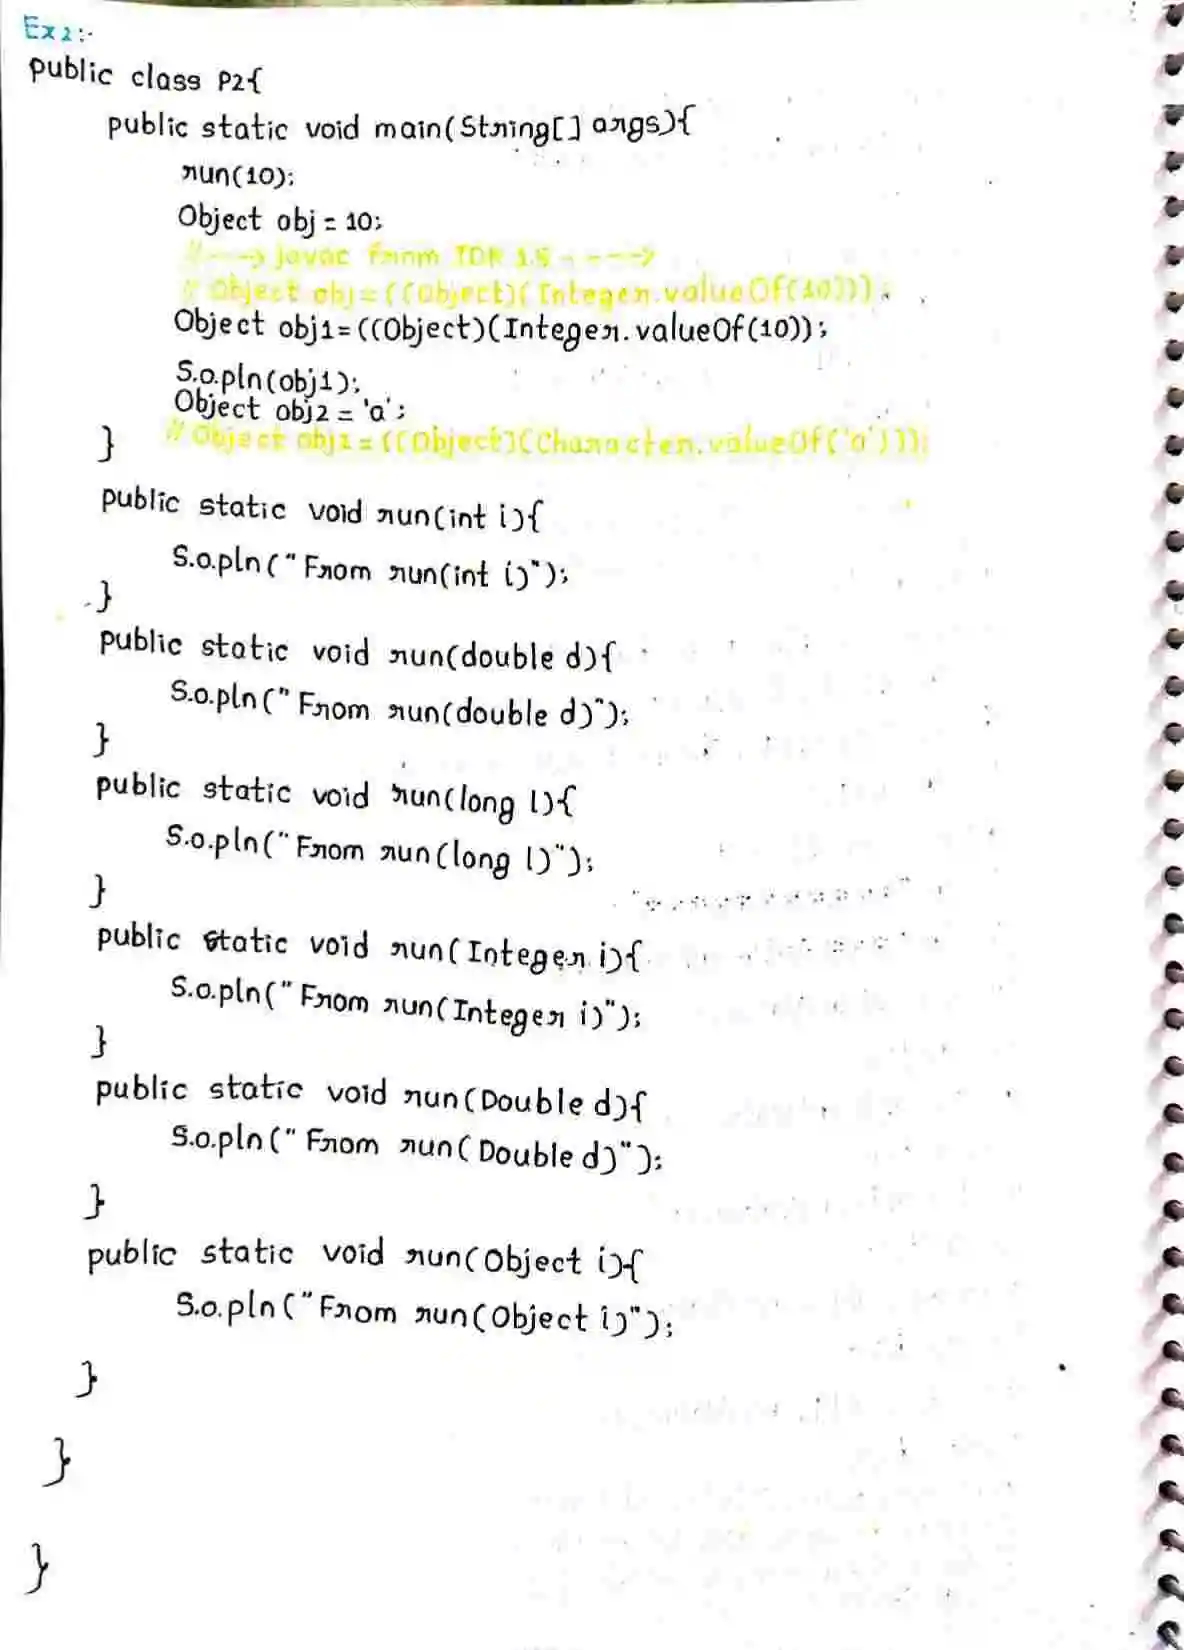 Ex2:-
public class P2{
public static void main(String[] args){
run(10);
Object obj = 10;
//----> javac from JDK 1.5 ---->
// Object obj = ((Object)(Integer.valueOf(10)));
Object obj1= ((Object)(Integer.valueOf(10));
S.o.pln(obj1);
Object obj2 = 'a';
} // Object obj2 = ((Object)(Character.valueOf('a')));
public static void run(int i){
S.o.pln("From run(int i)");
}
public static void run(double d){
S.o.pln("From run(double d)");
}
public static void run(long l){
S.o.pln("From run(long l)");
}
public static void run(Integer i){
S.o.pln("From run(Integer i)");
}
public static void run(Double d){
S.o.pln("From run(Double d)");
}
public static void run(Object i){
S.o.pln("From run(Object i)");
}
}
}